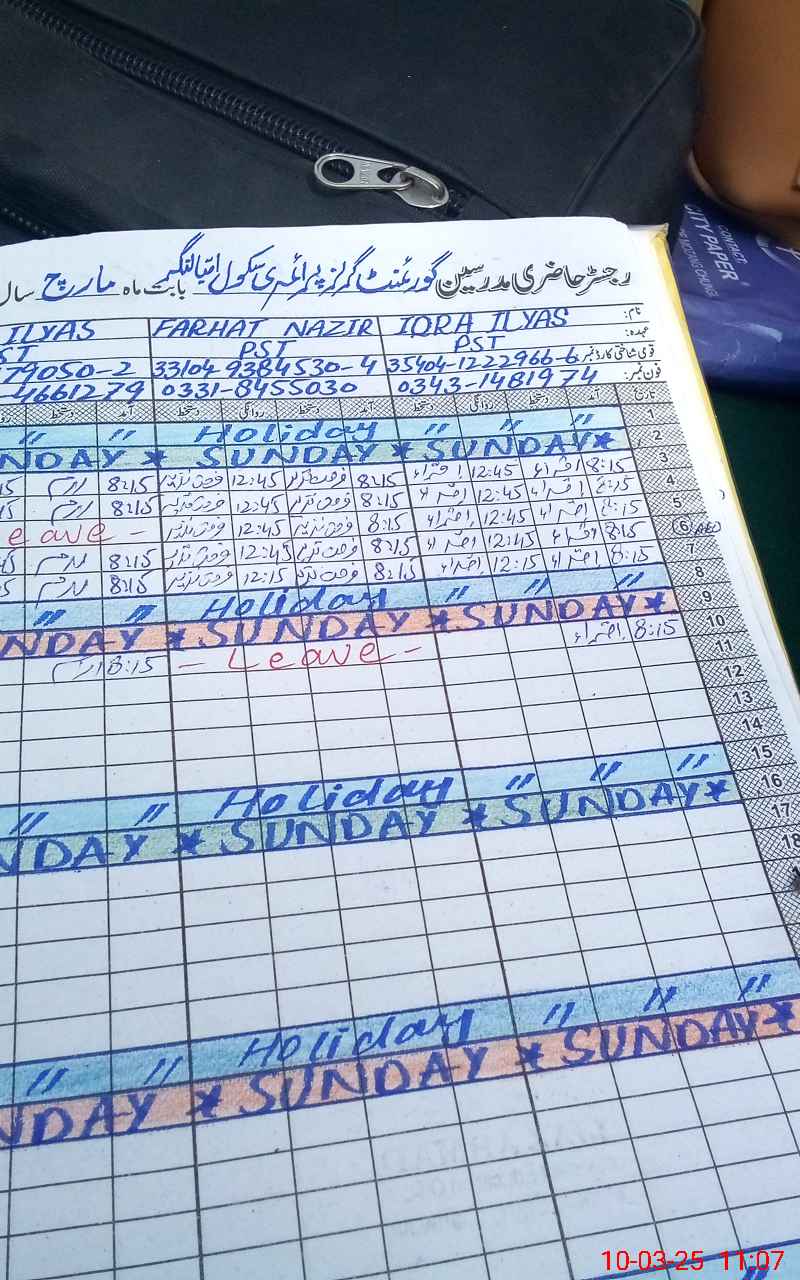 رجسٹر حاضری مدرسین گورنمنٹ گرلز پرائمری سکول اقبالنگر بابت ماہ مارچ سال
نام: IQRA ILYAS FARHAT NAZIR ILYAS
عہدہ: PST PST ST
قومی شناختی کارڈ نمبر 35404-1222966-6 33104-9384530-4 79050-2
فون نمبر: 0343-1481974 0331-8455030 -4661279
تاریخ آمد دستخط روانگی دستخط آمد دستخط روانگی دستخط آمد دستخط
1 〃 〃 〃 Holiday 〃 〃
2 NDAY * SUNDAY * SUNDAY *
3 8:15 اقراء 12:45 اقراء 8:15 فرحت نذیر 12:45 فرحت نذیر 8:15 ارم
4 8:15 اقراء 12:45 اقراء 8:15 فرحت نذیر 12:45 فرحت نذیر 8:15 ارم
5 8:15 اقراء 12:45 اقراء 8:15 فرحت نذیر 12:45 فرحت نذیر eave -
6 8:15 اقراء 12:45 اقراء 8:15 فرحت نذیر 12:45 فرحت نذیر 8:15 ارم
7 8:15 اقراء 12:15 اقراء 8:15 فرحت نذیر 12:15 فرحت نذیر 8:15 ارم
8 〃 〃 〃 Holiday 〃 〃
9 NDAY * SUNDAY * SUNDAY *
10 8:15 اقراء - Leave - 8:15 ارم
11
12
13
14
15 〃 〃 〃 Holiday 〃 〃
16 NDAY * SUNDAY * SUNDAY *
17
18
〃 〃 〃 Holiday 〃 〃
NDAY * SUNDAY * SUNDAY *
CONTACT:
CITY PAPER
10-03-25 11:07